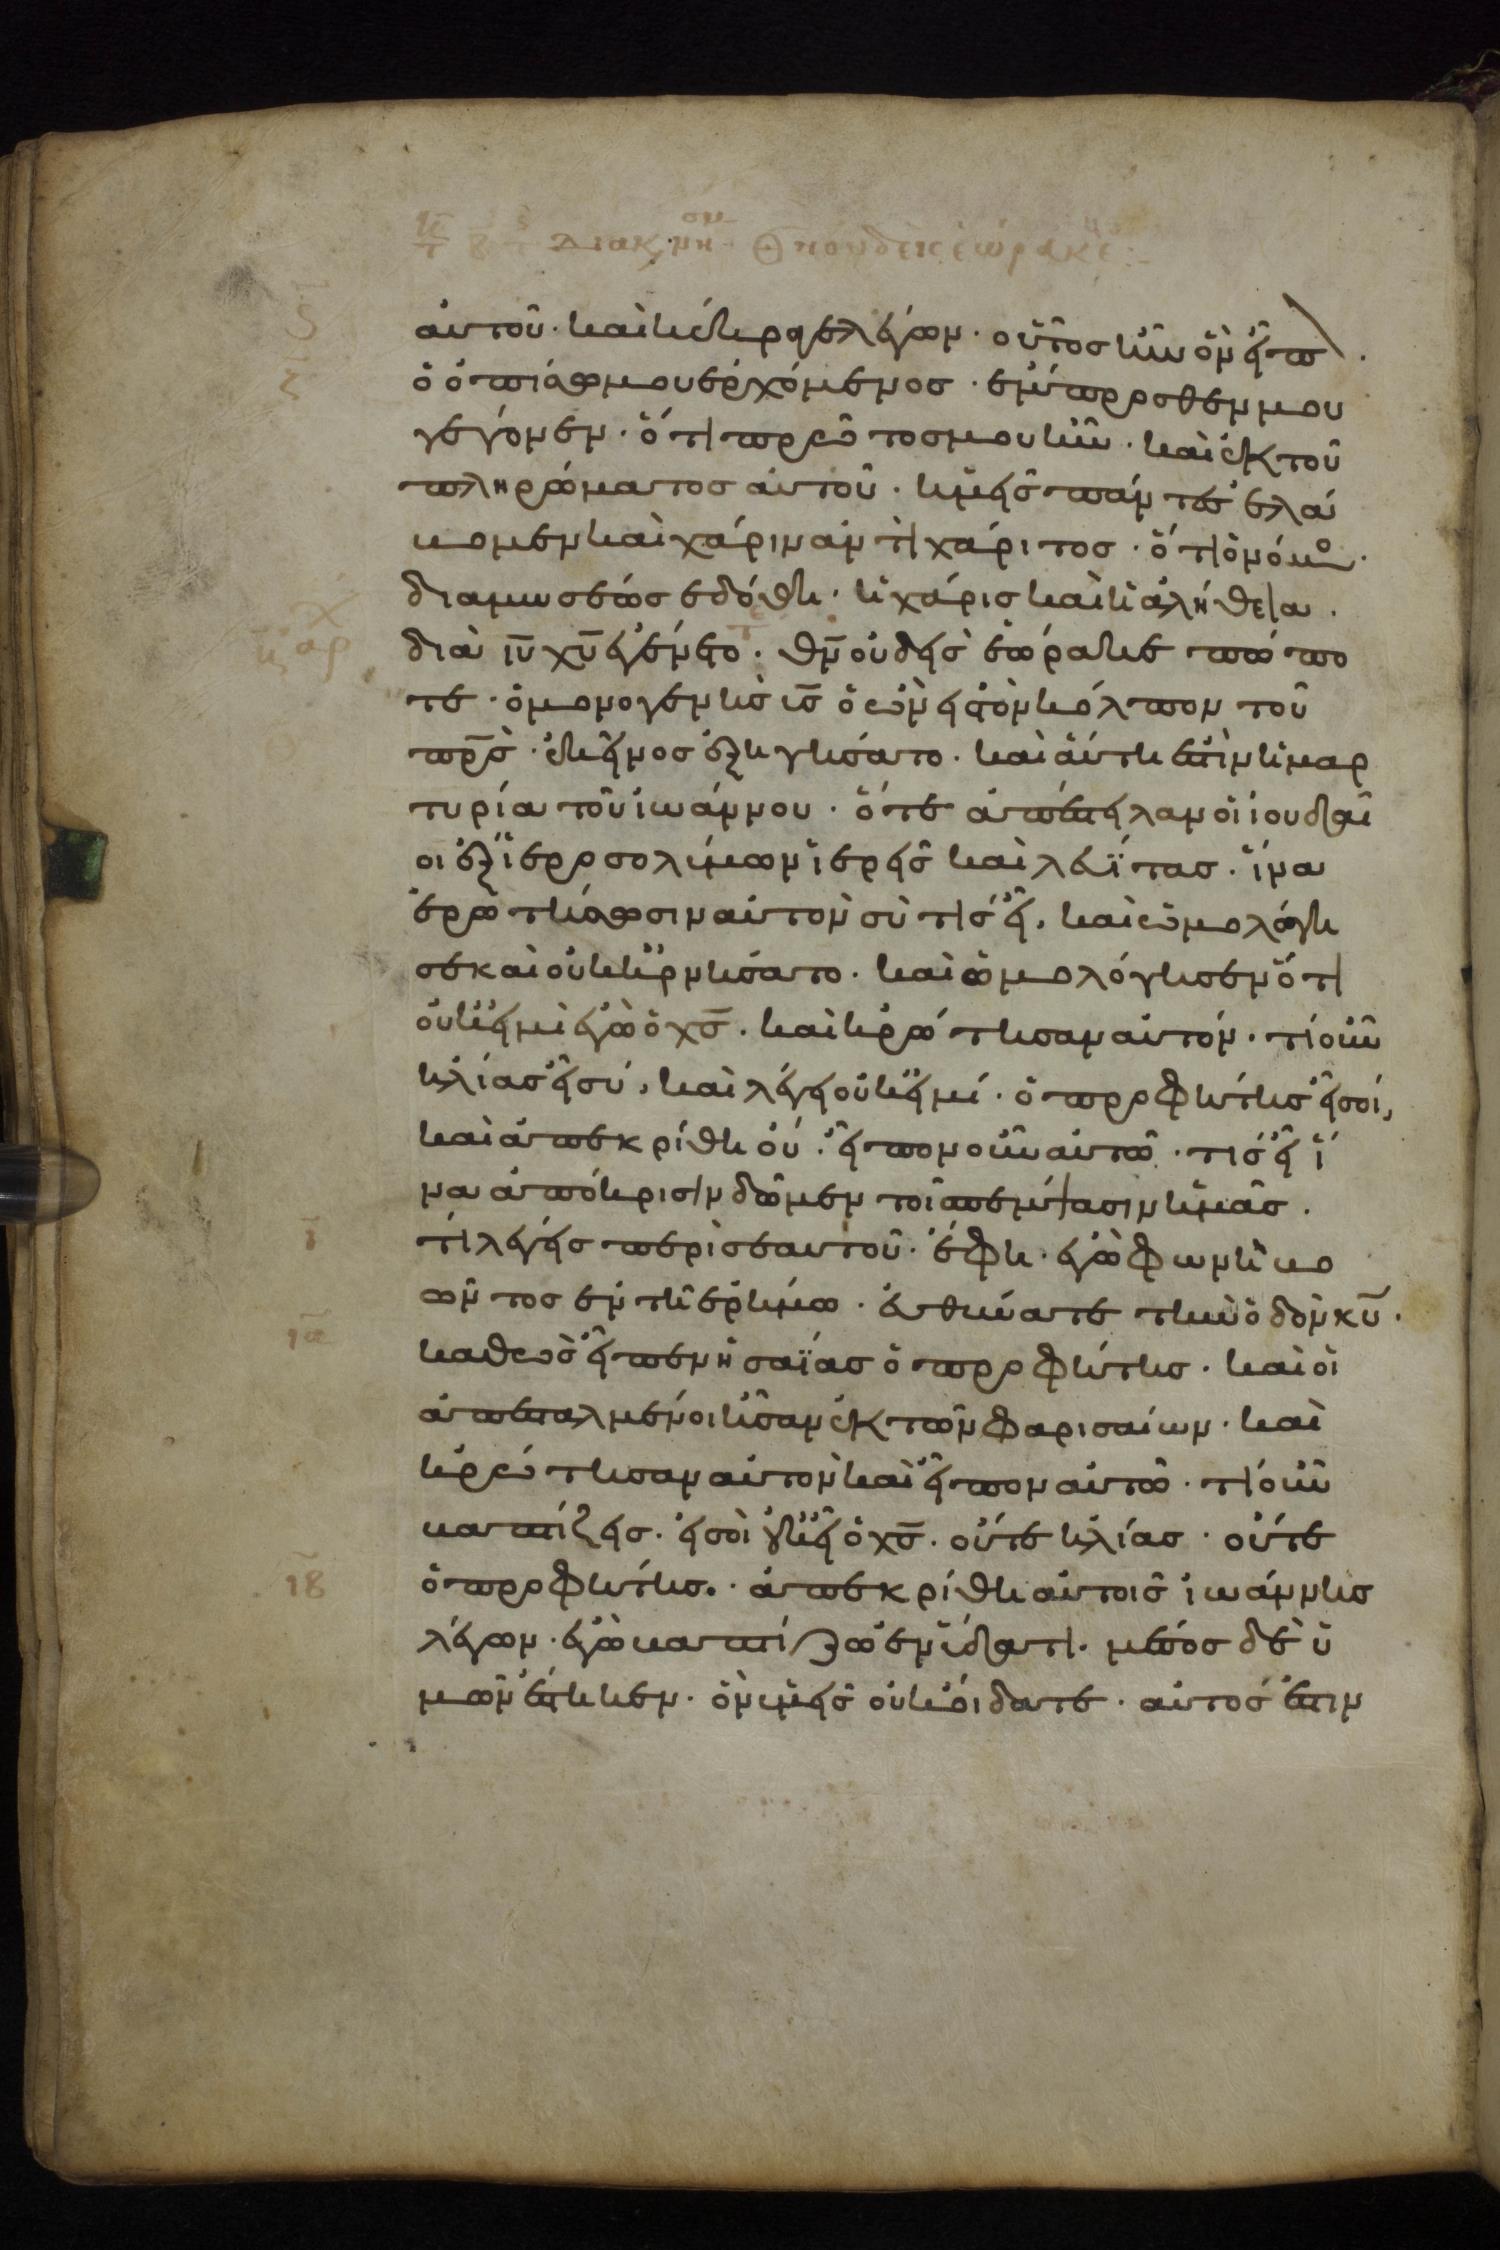 Θν οὐδεὶς ἑώρακε
αὐτοῦ· καὶ κέκραγε λέγων· οὗτος ἦν ὃν εἶπ·
ὁ ὀπίσω μου ἐρχόμενος· ἔμπροσθέν μου
γέγονεν· ὅτι πρῶτος μου ἦν· καὶ ἐκ τοῦ
πληρώματος αὐτοῦ· ἡμεῖς πάντες ἐλά
βομεν καὶ χάριν ἀντὶ χάριτος· ὅτι ὁ νόμο·
δια μωσέως ἐδόθη· ἡ χάρις καὶ ἡ ἀλήθεια·
διὰ ιυ̅ χυ̅ ἐγένετο· θν̅ οὐδεὶς ἑώρακε πώπο
τε· ὁ μονογενὴς υς̅ ὁ ὢν εἰς τὸν κόλπον τοῦ
πρς̅· ἐκεῖνος ἐξηγήσατο· καὶ αὕτη ἐστὶν ἡ μαρ
τυρία τοῦ ἰωάννου· ὅτε ἀπέστειλαν οἱ ἰουδαῖ
οι ἐξ ἱεροσολύμων ἱερεῖς καὶ λευΐτας· ἵνα
ἐρωτήσωσιν αὐτὸν σὺ τίς εἶ, καὶ ὡμολόγη
σε καὶ οὐκ ἠρνήσατο· καὶ ὡμολόγησεν ὅτι
οὐκ εἰμὶ ἐγὼ ὁ χς̅· καὶ ἠρώτησαν αὐτόν· τί οὖν
ἡλίας εἶ σύ, καὶ λέγει οὐκ εἰμί· ὁ προφήτης εἶ σοί,
καὶ ἀπεκρίθη οὔ· εἶπον οὖν αὐτῶ· τίς εἶ ἵ
να ἀπόκρισιν δῶμεν τοῖς πέμψασιν ἡμᾶς·
τί λέγεις περὶ σεαυτοῦ· ἔφη· ἐγὼ φωνὴ βο
ῶντος ἐν τῆ ἐρήμω· εὐθύνατε τὴν ὁδὸν κυ̅·
καθὼς εἶπεν ἡσαΐας ὁ προφήτης· καὶ οἱ
ἀπεσταλμένοι ἦσαν ἐκ τῶν φαρισαίων· καὶ
ἠρώτησαν αὐτὸν καὶ εἶπον αὐτῶ· τί οὖν
βαπτίζεις· εἰ σὺ οὐκ εἶ ὁ χς̅· οὔτε ἡλίας· οὔτε
ὁ προφήτης· ἀπεκρίθη αὐτοῖς ἰωάννης
λέγων· ἐγὼ βαπτίζω ἐν ὕδατι· μέσος δὲ ὑ
μῶν ἕστηκεν· ὃν ὑμεῖς οὐκ οἴδατε· αὐτός ἐστιν